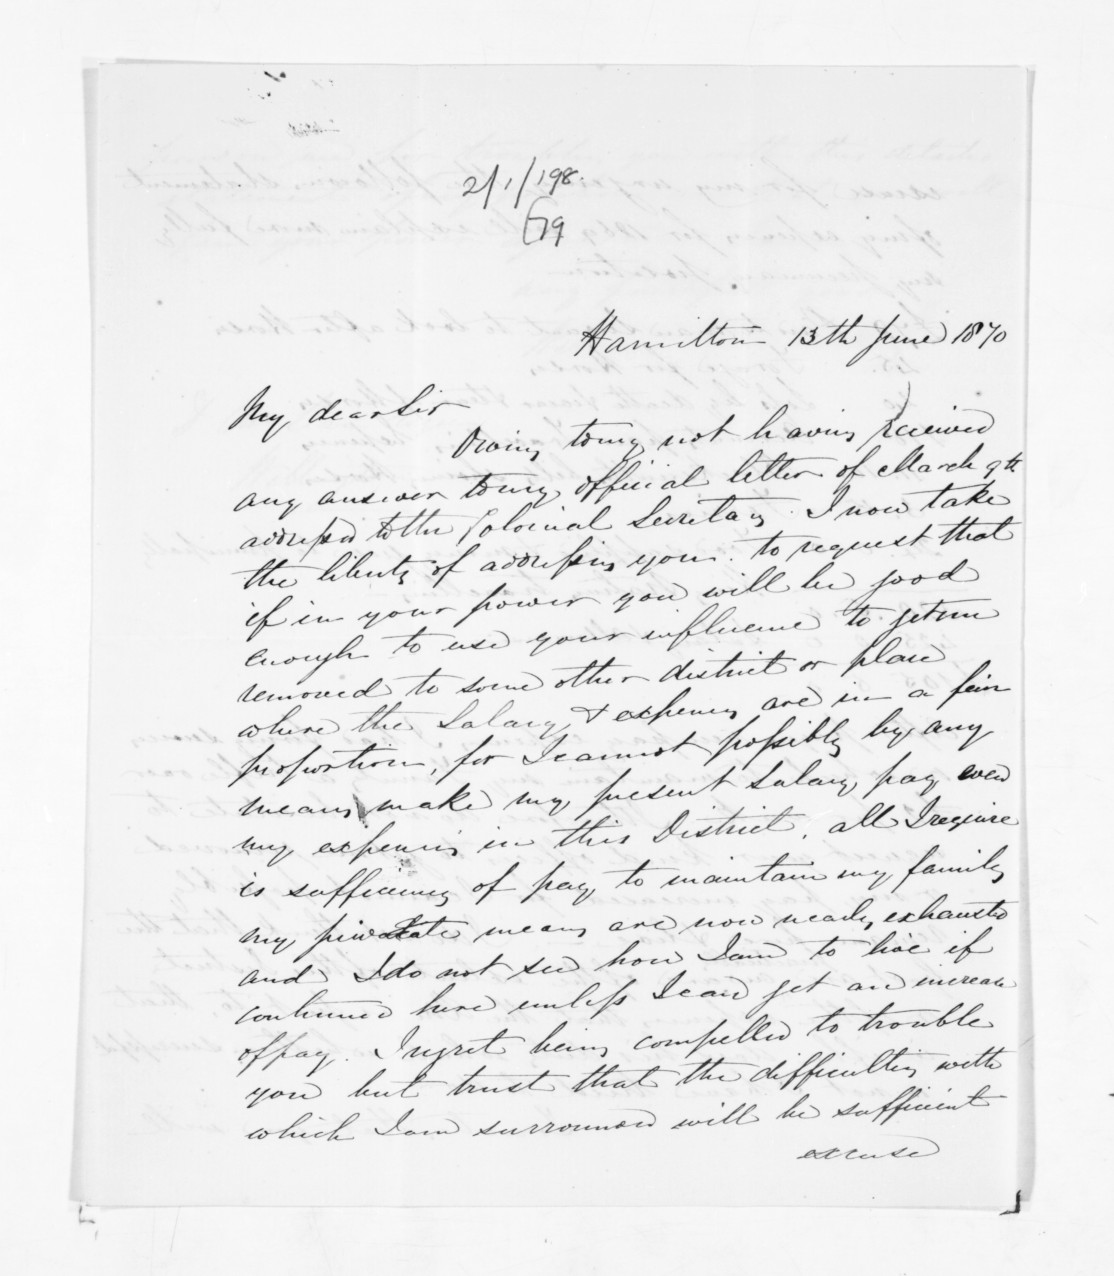 2/1/198.
79
Hamilton 13th June 1870
My dear Sir
Owing to my not having received
any answer to my official letter of March 9th
addressed to the Colonial Secretary. I now take
the liberty of addressing you. to request that
if in your power you will be good
enough to use your influence to get me
removed to some other district or place
where the Salary & expenses are in a fair
proportion, for I cannot possibly by any
means make my present Salary pay even
my expenses in this District, all I require
is sufficiency of pay to maintain my family
my private means are now nearly exhausted
and I do not see how I am to live if
continued here unless I can get an increase
of pay. I regret being compelled to trouble
you but trust that the difficulties with
which I am surrounded will be sufficient
excuse